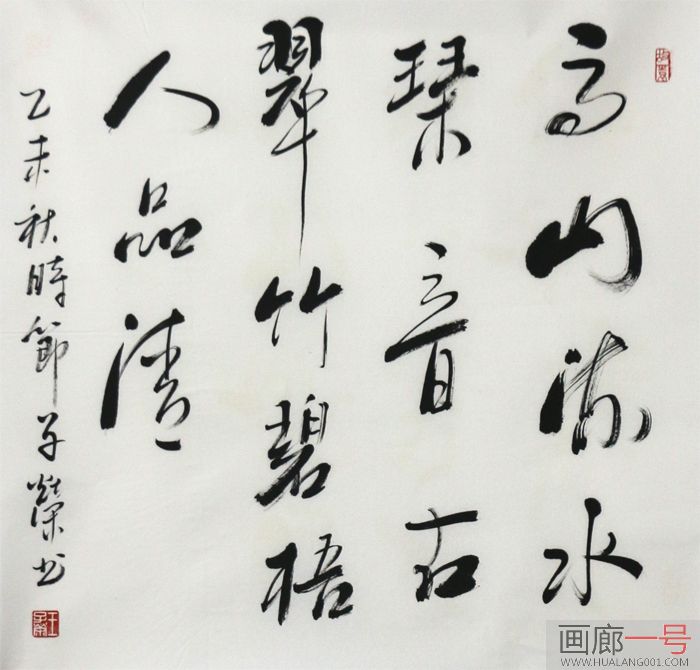 高山流水
琴音古
翠竹碧梧
人品清
乙未秋時節子榮书
画廊一号
WWW.HUALANG001.COM